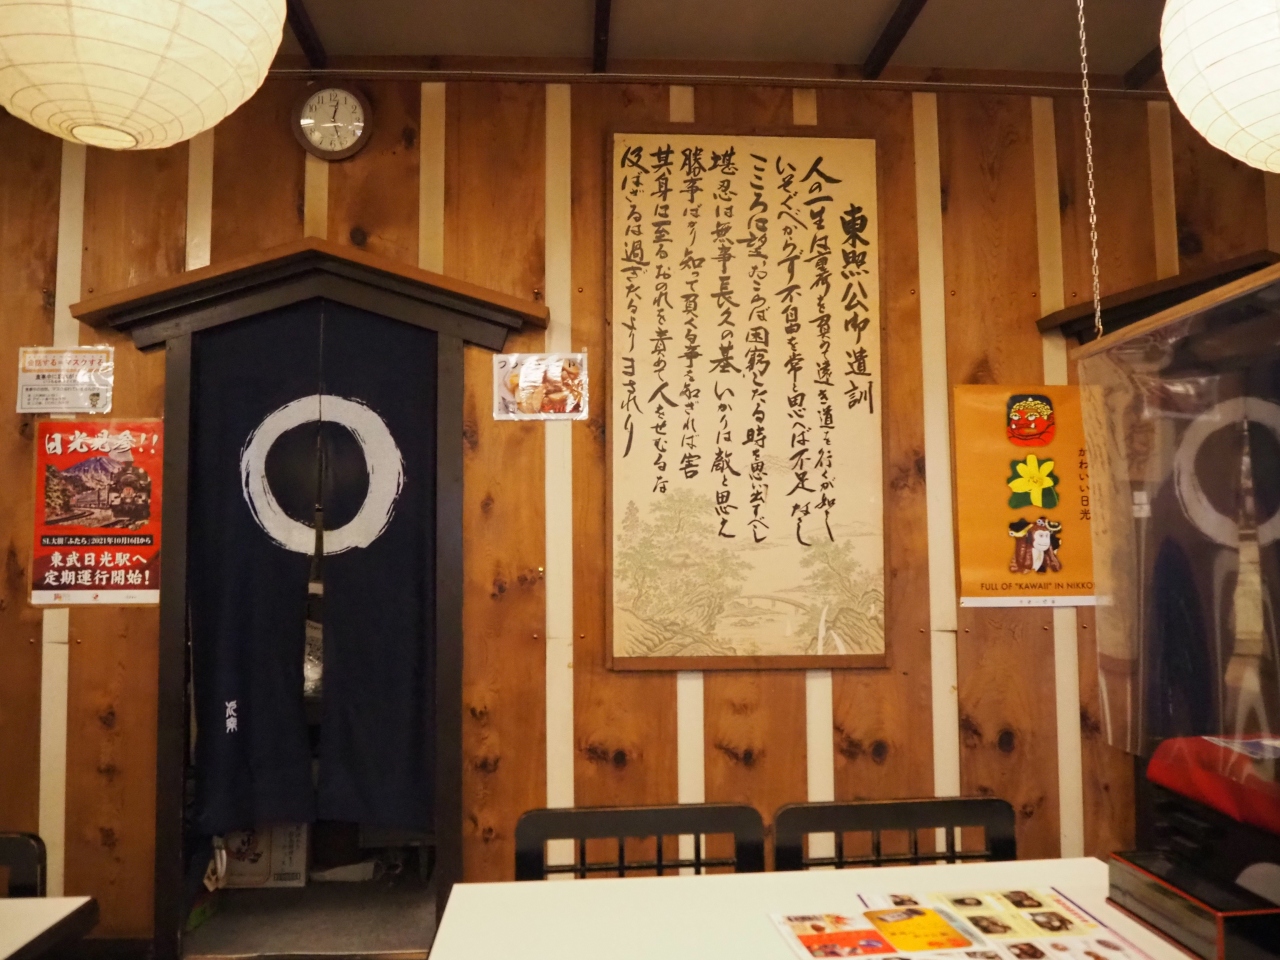 東照公御遺訓
人の一生は重荷を負うて遠き道を行くが如し
いそぐべからず不自由を常と思へば不足なし
こころに望おこらば困窮したる時を思い出すべし
堪忍は無事長久の基いかりは敵と思え
勝事ばかり知って負くる事を知ざれば害
其身に至るおのれを責めて人をせむるな
及ばざるは過ぎたるよりまされり
日光見参!!
SL大樹「ふたら」2021年10月16日から
東武日光駅へ
定期運行開始!
かわいい日光
FULL OF "KAWAII" IN NIKKO